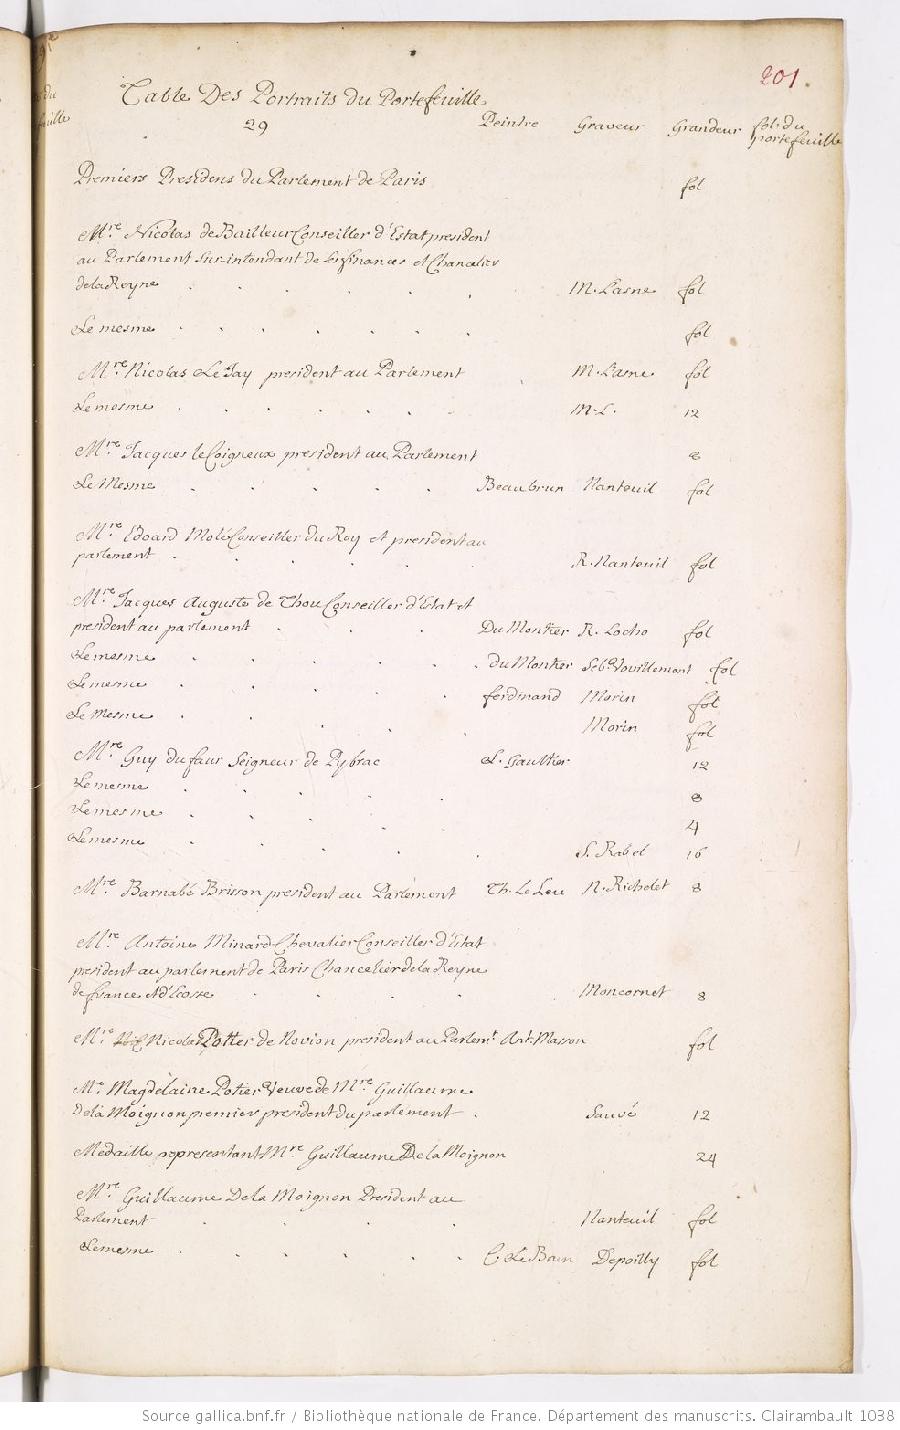 201.
Table Des Portraits du Portefeuille
29 Peintre Graveur Grandeur fol. du portefeuille
Premiers Presidens du Parlement de Paris fol
Mre. Nicolas de Bailleur Conseiller d'Estat president
au Parlement Sur-intendant de les finances et Chancelier
de la Reyne M. Lasne fol
Le mesme fol
Mre. Nicolas Le Jay president au Parlement M. Lasne fol
Le mesme M. L. 12
Mre. Jacques le Coigneux president au Parlement 8
Le Mesme Beaubrun Nanteuil fol
Mre. Edoard Molé Conseiller du Roy et president au
parlement R. Nanteuil fol
Mre. Jacques Auguste de Thou Conseiller d'Estat et
president au parlement Du Monter R. Locho fol
Le mesme du Monter Seb. Vouillemont fol
Le mesme ferdinand Morin fol
Le Mesme Morin fol
Mre. Guy du faur Seigneur de Pybrac L. Gaultier 12
Le mesme 8
Le mesme 4
Le mesme S. Rabel 16
Mre. Barnabé Brisson president au Parlement Th. Le Leu N. Richelet 8
Mre. Antoine Minard Chevalier Conseiller d'Estat
president au parlement de Paris Chancelier de la Reyne
de france et d'Ecosse Moncornet 8
Mre. Nicolas Potier de Novion president au Parlemt. Ant. Masson fol
Me. Magdelaine Potier Veuve de Mre Guillaume
De la Moignon premier president du parlement Sauvé 12
Medaille representant Mre Guillaume De la Moignon 24
Mre. Guillaume De la Moignon President au
Parlement Nanteuil fol
Le mesme C. Le Brun Depoilly fol
Source gallica.bnf.fr / Bibliothèque nationale de France. Département des manuscrits. Clairambault 1038